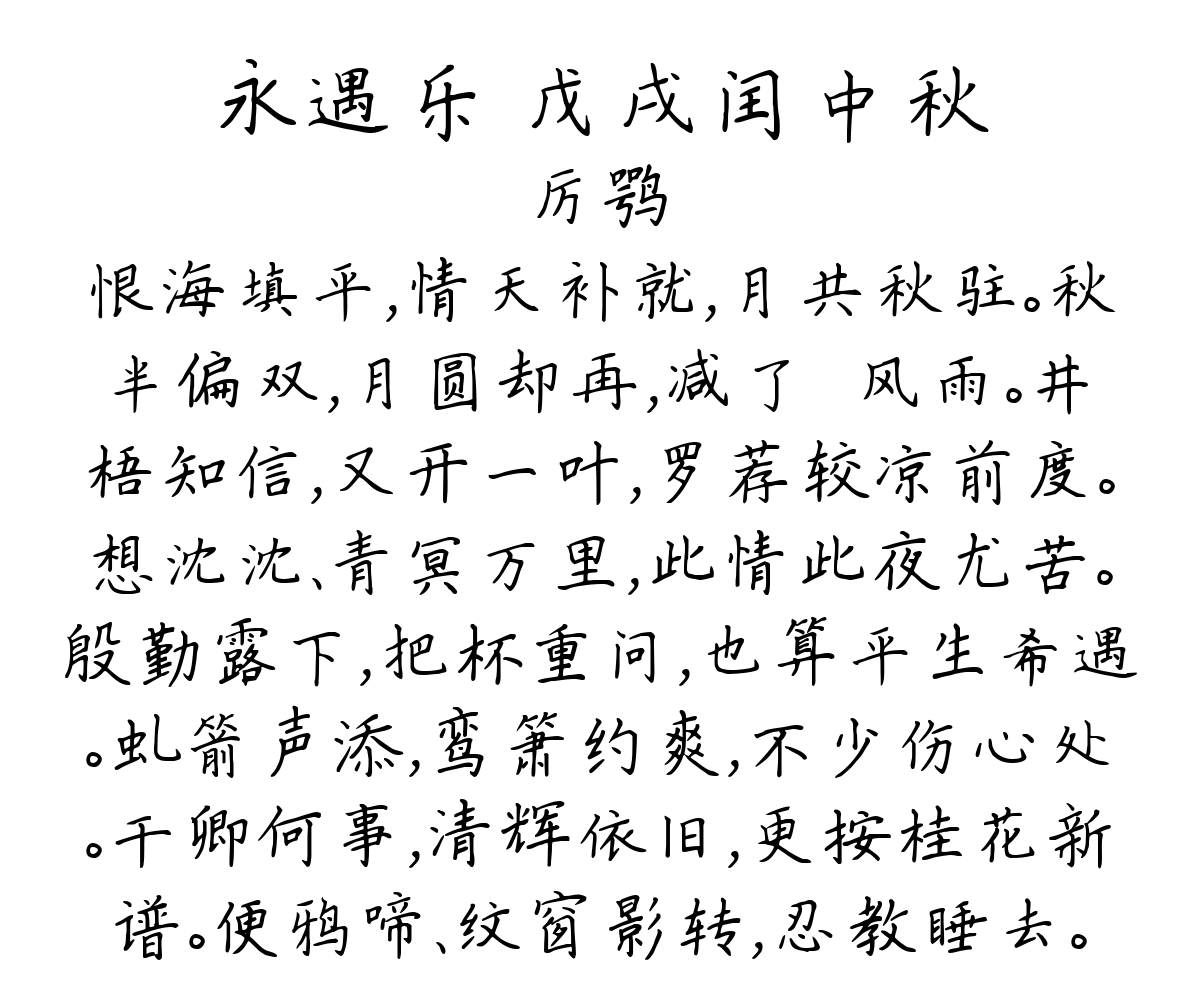 永遇乐 戊戌闰中秋
厉鹗
恨海填平,情天补就,月共秋驻。秋
半偏双,月圆却再,减了 风雨。井
梧知信,又开一叶,罗荐较凉前度。
想沈沈、青冥万里,此情此夜尤苦。
殷勤露下,把杯重问,也算平生希遇
。虬箭声添,鸾箫约爽,不少伤心处
。干卿何事,清辉依旧,更按桂花新
谱。便鸦啼、纹窗影转,忍教睡去。